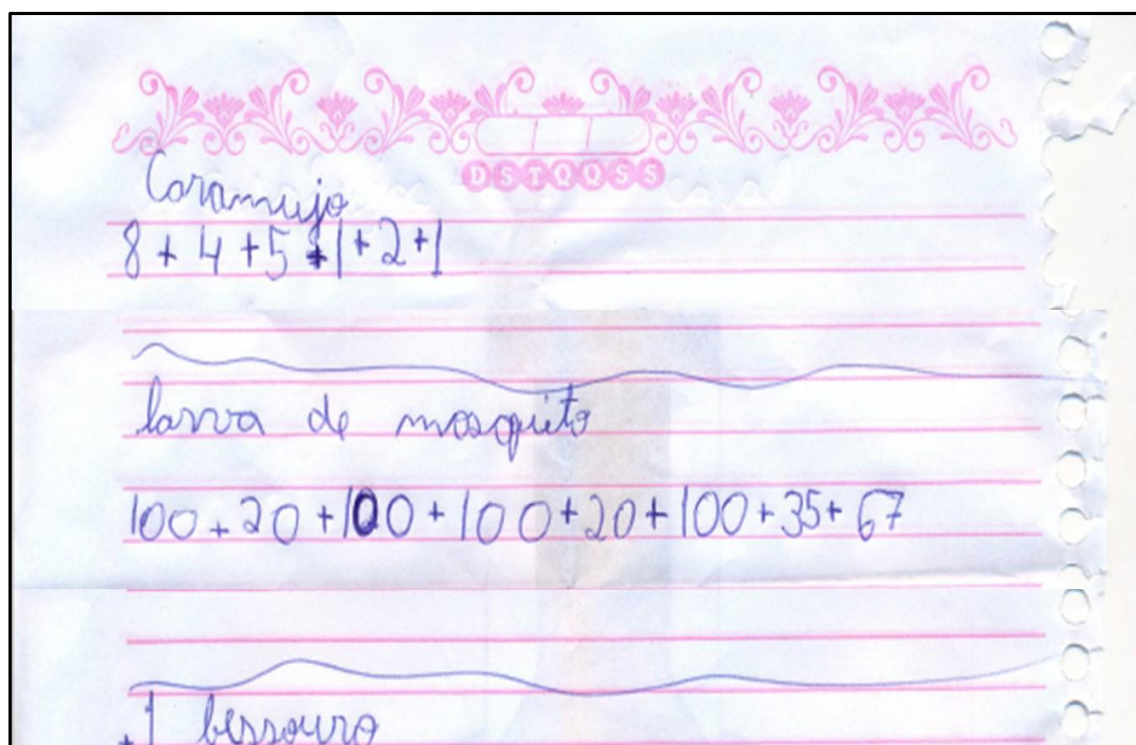 DSTQQSS
Caramujo
8 + 4 + 5 + 1 + 2 + 1
larva de mosquito
100 + 20 + 100 + 100 + 20 + 100 + 35 + 67
+1 bessouro